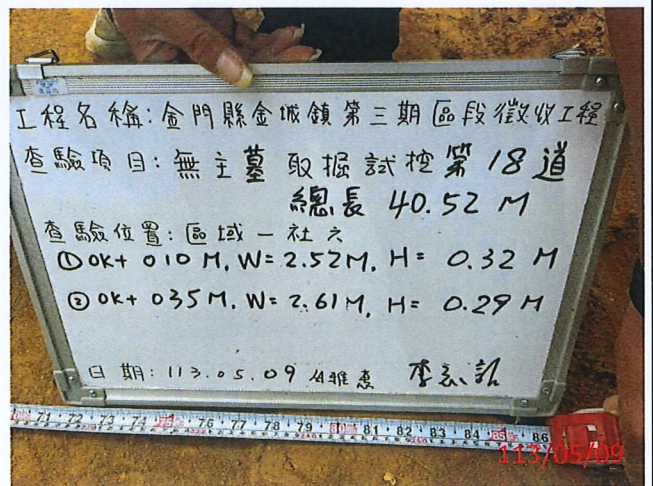 工程名稱:金門縣金城鎮第三期區段徵收工程
查驗項目:無主墓 取掘試挖第18道
總長 40.52 M
查驗位置:區域一社六
①0K+010M, W=2.52M, H= 0.32 M
②0K+035M, W=2.61M, H= 0.29 M
日期:113.05.09
71 72 73 74 75 76 77 78 79 80 81 82 83 84 85 86
113/05/09